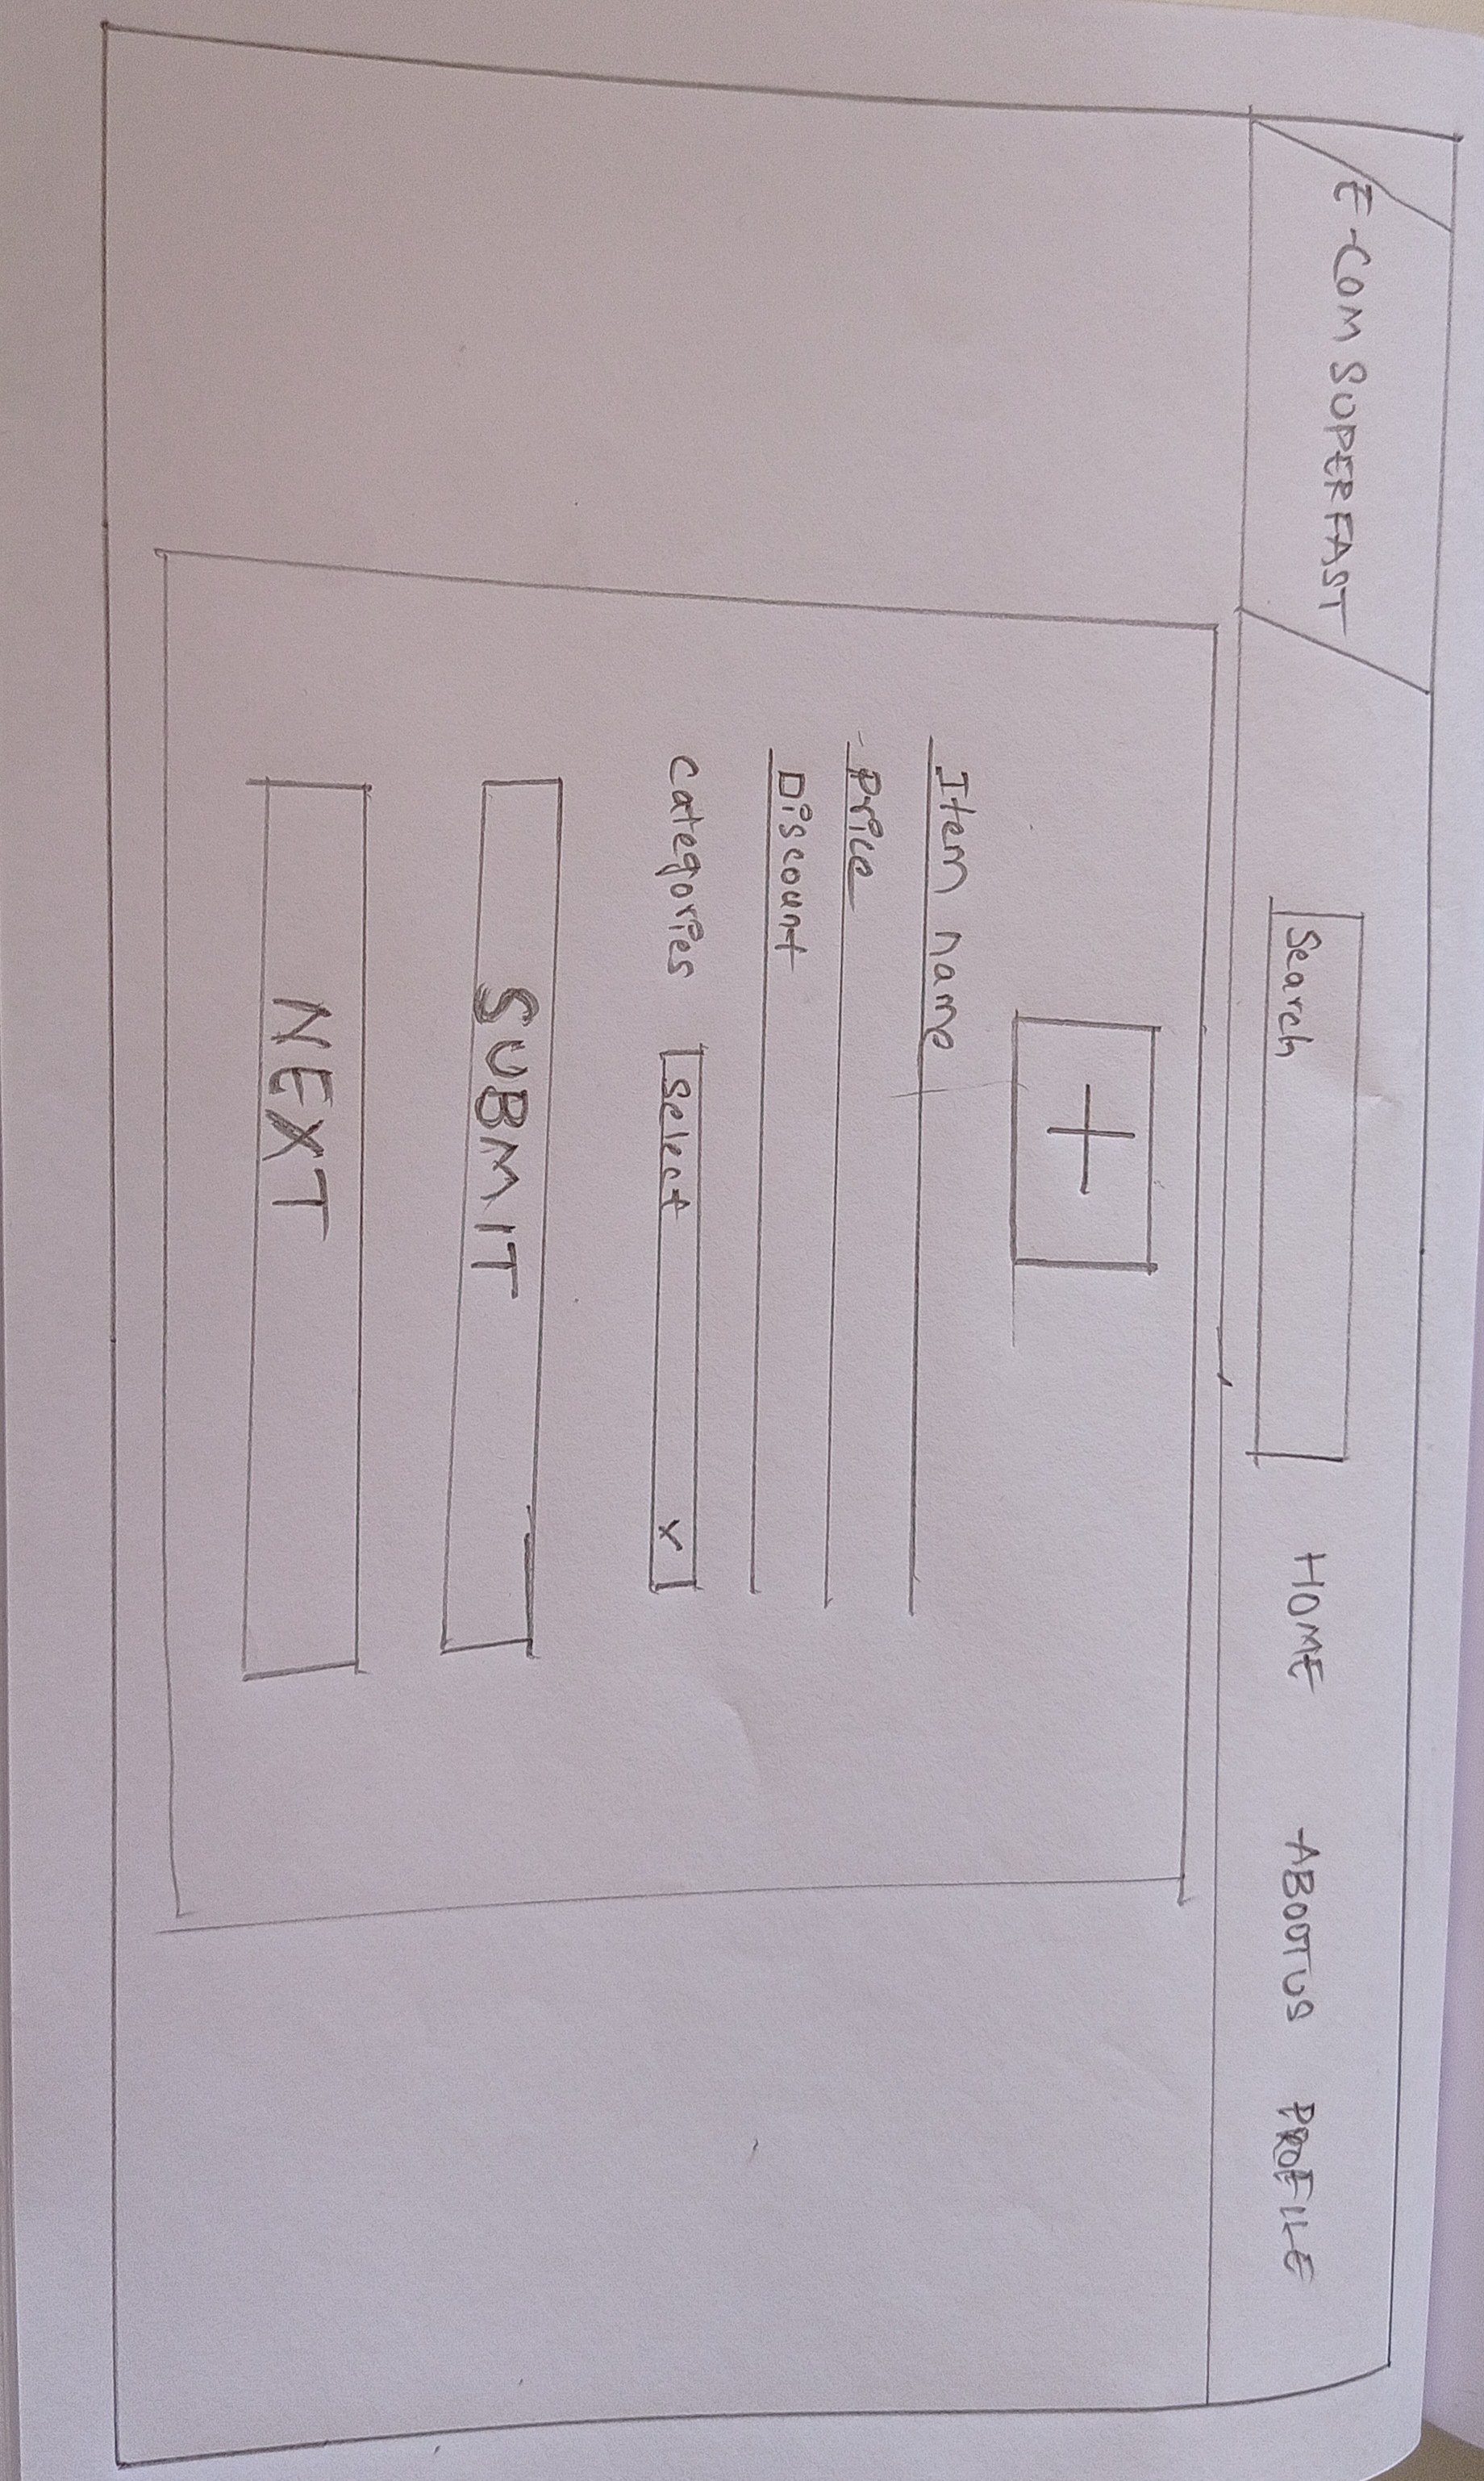 E-COM SUPERFAST Search HOME ABOUTUS PROFILE
+
Item name
Price
Discount
categories select v
SUBMIT
NEXT